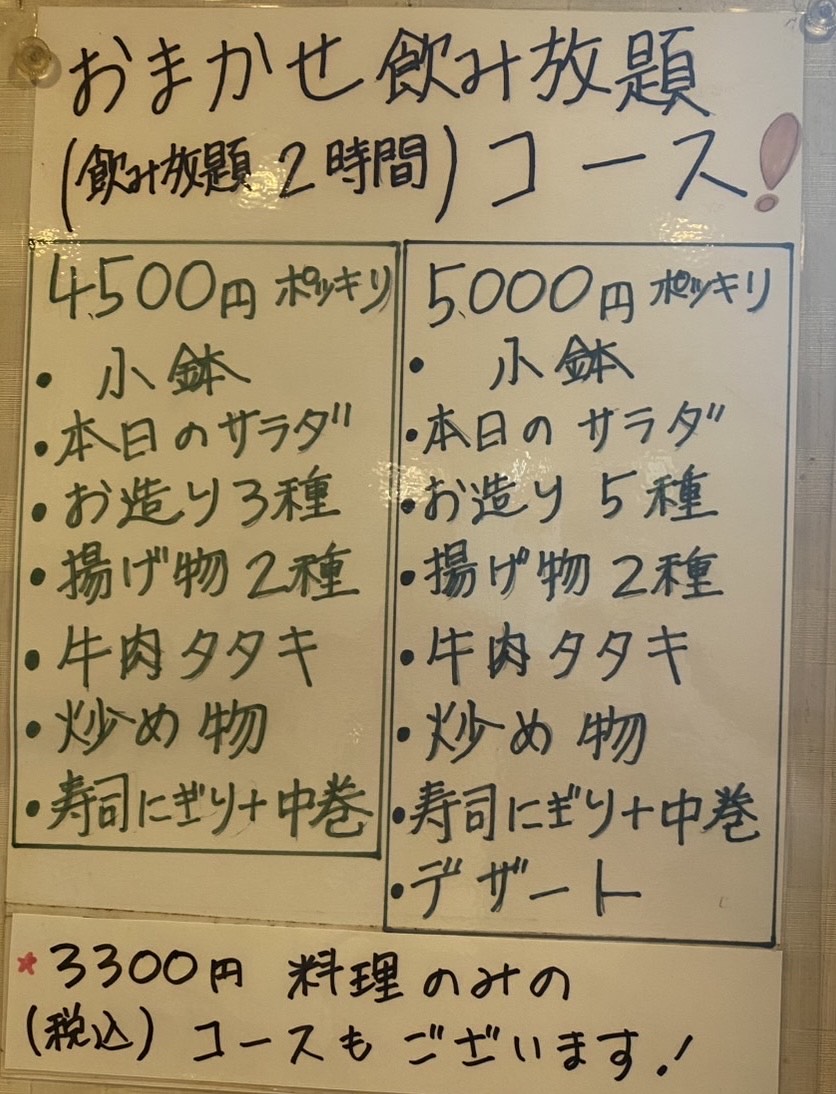 おまかせ飲み放題
(飲み放題 2時間) コース!
4,500円 ポッキリ
・ 小鉢
・本日のサラダ
・お造り3種
・揚げ物2種
・牛肉タタキ
・炒め物
・寿司にぎり+中巻
5,000円 ポッキリ
・ 小鉢
・本日の サラダ
・お造り 5種
・揚げ物 2種
・牛肉タタキ
・炒め物
・寿司にぎり+中巻
・デザート
*3300円 料理のみの
(税込) コースもございます!